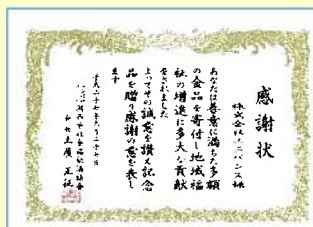 感謝状
株式会社 バンス 様
あなたは善意に満ちた多額
の金品を寄付し地域福
祉の増進に多大な貢献
をされました
よってその誠意を讃え記念
品を贈り感謝の意を表し
ます
平成二十七年 月二十 日
社会福祉協議会